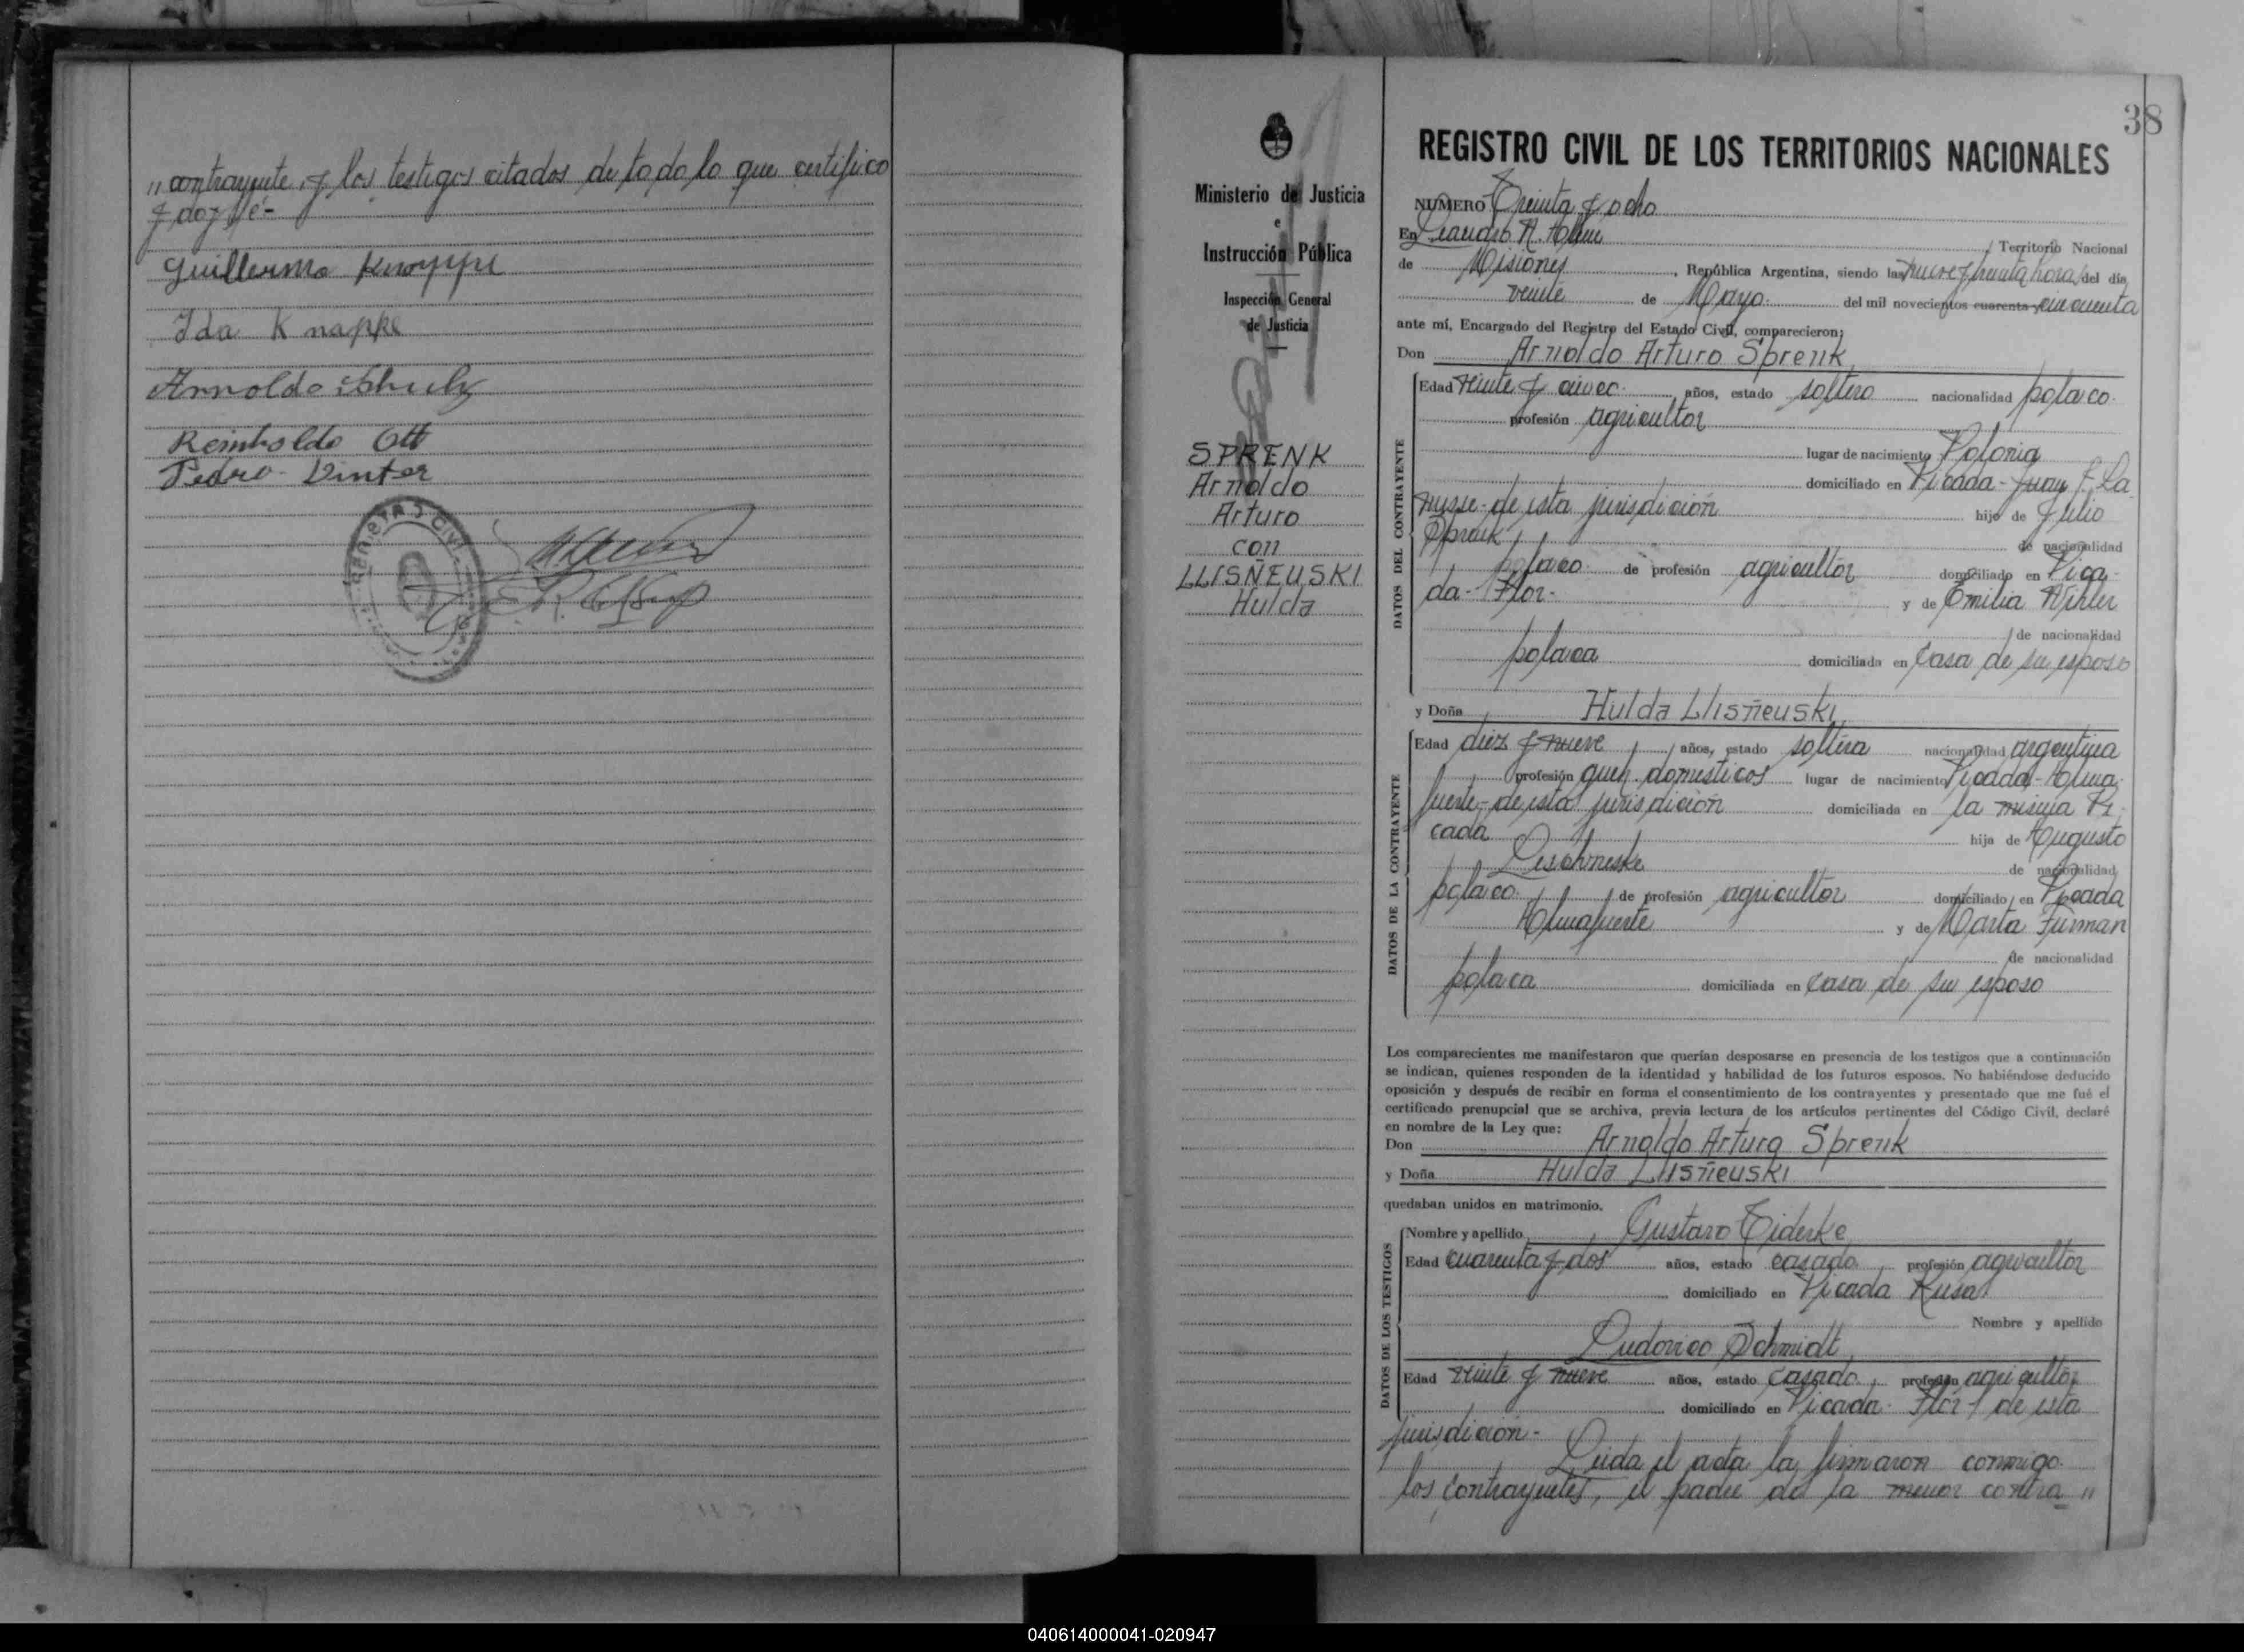 „contrayente, y los testigos citados de todo lo que certifico
y doy fé-
Guillermo Knoppe
Ida Knappe
Arnoldo Schulz
Reinholdo Ott
Pedro Winter
38
Ministerio de Justicia
e
Instrucción Pública
Inspección General
de Justicia
SPRENK
Arnoldo
Arturo
con
LLISÑEUSKI
Hulda
REGISTRO CIVIL DE LOS TERRITORIOS NACIONALES
NUMERO Treinta y ocho
En Leandro N. Alem, Territorio Nacional
de Misiones, República Argentina, siendo las nueve y treinta horas del día
veinte de Mayo del mil novecientos cuarenta y cincuenta
ante mí, Encargado del Registro del Estado Civil, comparecieron;
Don Arnoldo Arturo Sprenk
DATOS DEL CONTRAYENTE
Edad veinte y cinco años, estado soltero nacionalidad polaco
profesión agricultor
lugar de nacimiento Polonia
domiciliado en Picada-Juan F. La
husse-de esta jurisdicion hijo de Julio
Sprenk de nacionalidad
polaco de profesión agricultor domiciliado en Pica-
da-Flor- y de Emilia
de nacionalidad
polaca domiciliada en casa de su esposo
y Doña Hulda Llisñeuski
DATOS DE LA CONTRAYENTE
Edad diez y nueve años, estado soltera nacionalidad argentina
profesión queh. domesticos lugar de nacimiento Picada-Alma-
fuerte-de esta jurisdicion domiciliada en la misma Pi-
cada hija de Augusto
Lischneske de nacionalidad
polaco de profesión agricultor domiciliado en Picada
Almafuerte y de Marta Furman
de nacionalidad
polaca domiciliada en casa de su esposo
Los comparecientes me manifestaron que querían desposarse en presencia de los testigos que a continuación
se indican, quienes responden de la identidad y habilidad de los futuros esposos. No habiéndose deducido
oposición y después de recibir en forma el consentimiento de los contrayentes y presentado que me fué el
certificado prenupcial que se archiva, previa lectura de los artículos pertinentes del Código Civil, declaré
en nombre de la Ley que:
Don Arnoldo Arturo Sprenk
y Doña Hulda Llisñeuski
quedaban unidos en matrimonio.
DATOS DE LOS TESTIGOS
Nombre y apellido Gustavo Tiderke
Edad cuarenta y dos años, estado casado profesión agricultor
domiciliado en Picada Rusa
Nombre y apellido
Ludovico Schmidt
Edad veinte y nueve años, estado casado profesión agricultor
domiciliado en Picada-Flor- de esta
jurisdicion-
Leida el acta la firmaron conmigo
los contrayentes, el padre de la menor contra„
040614000041-020947